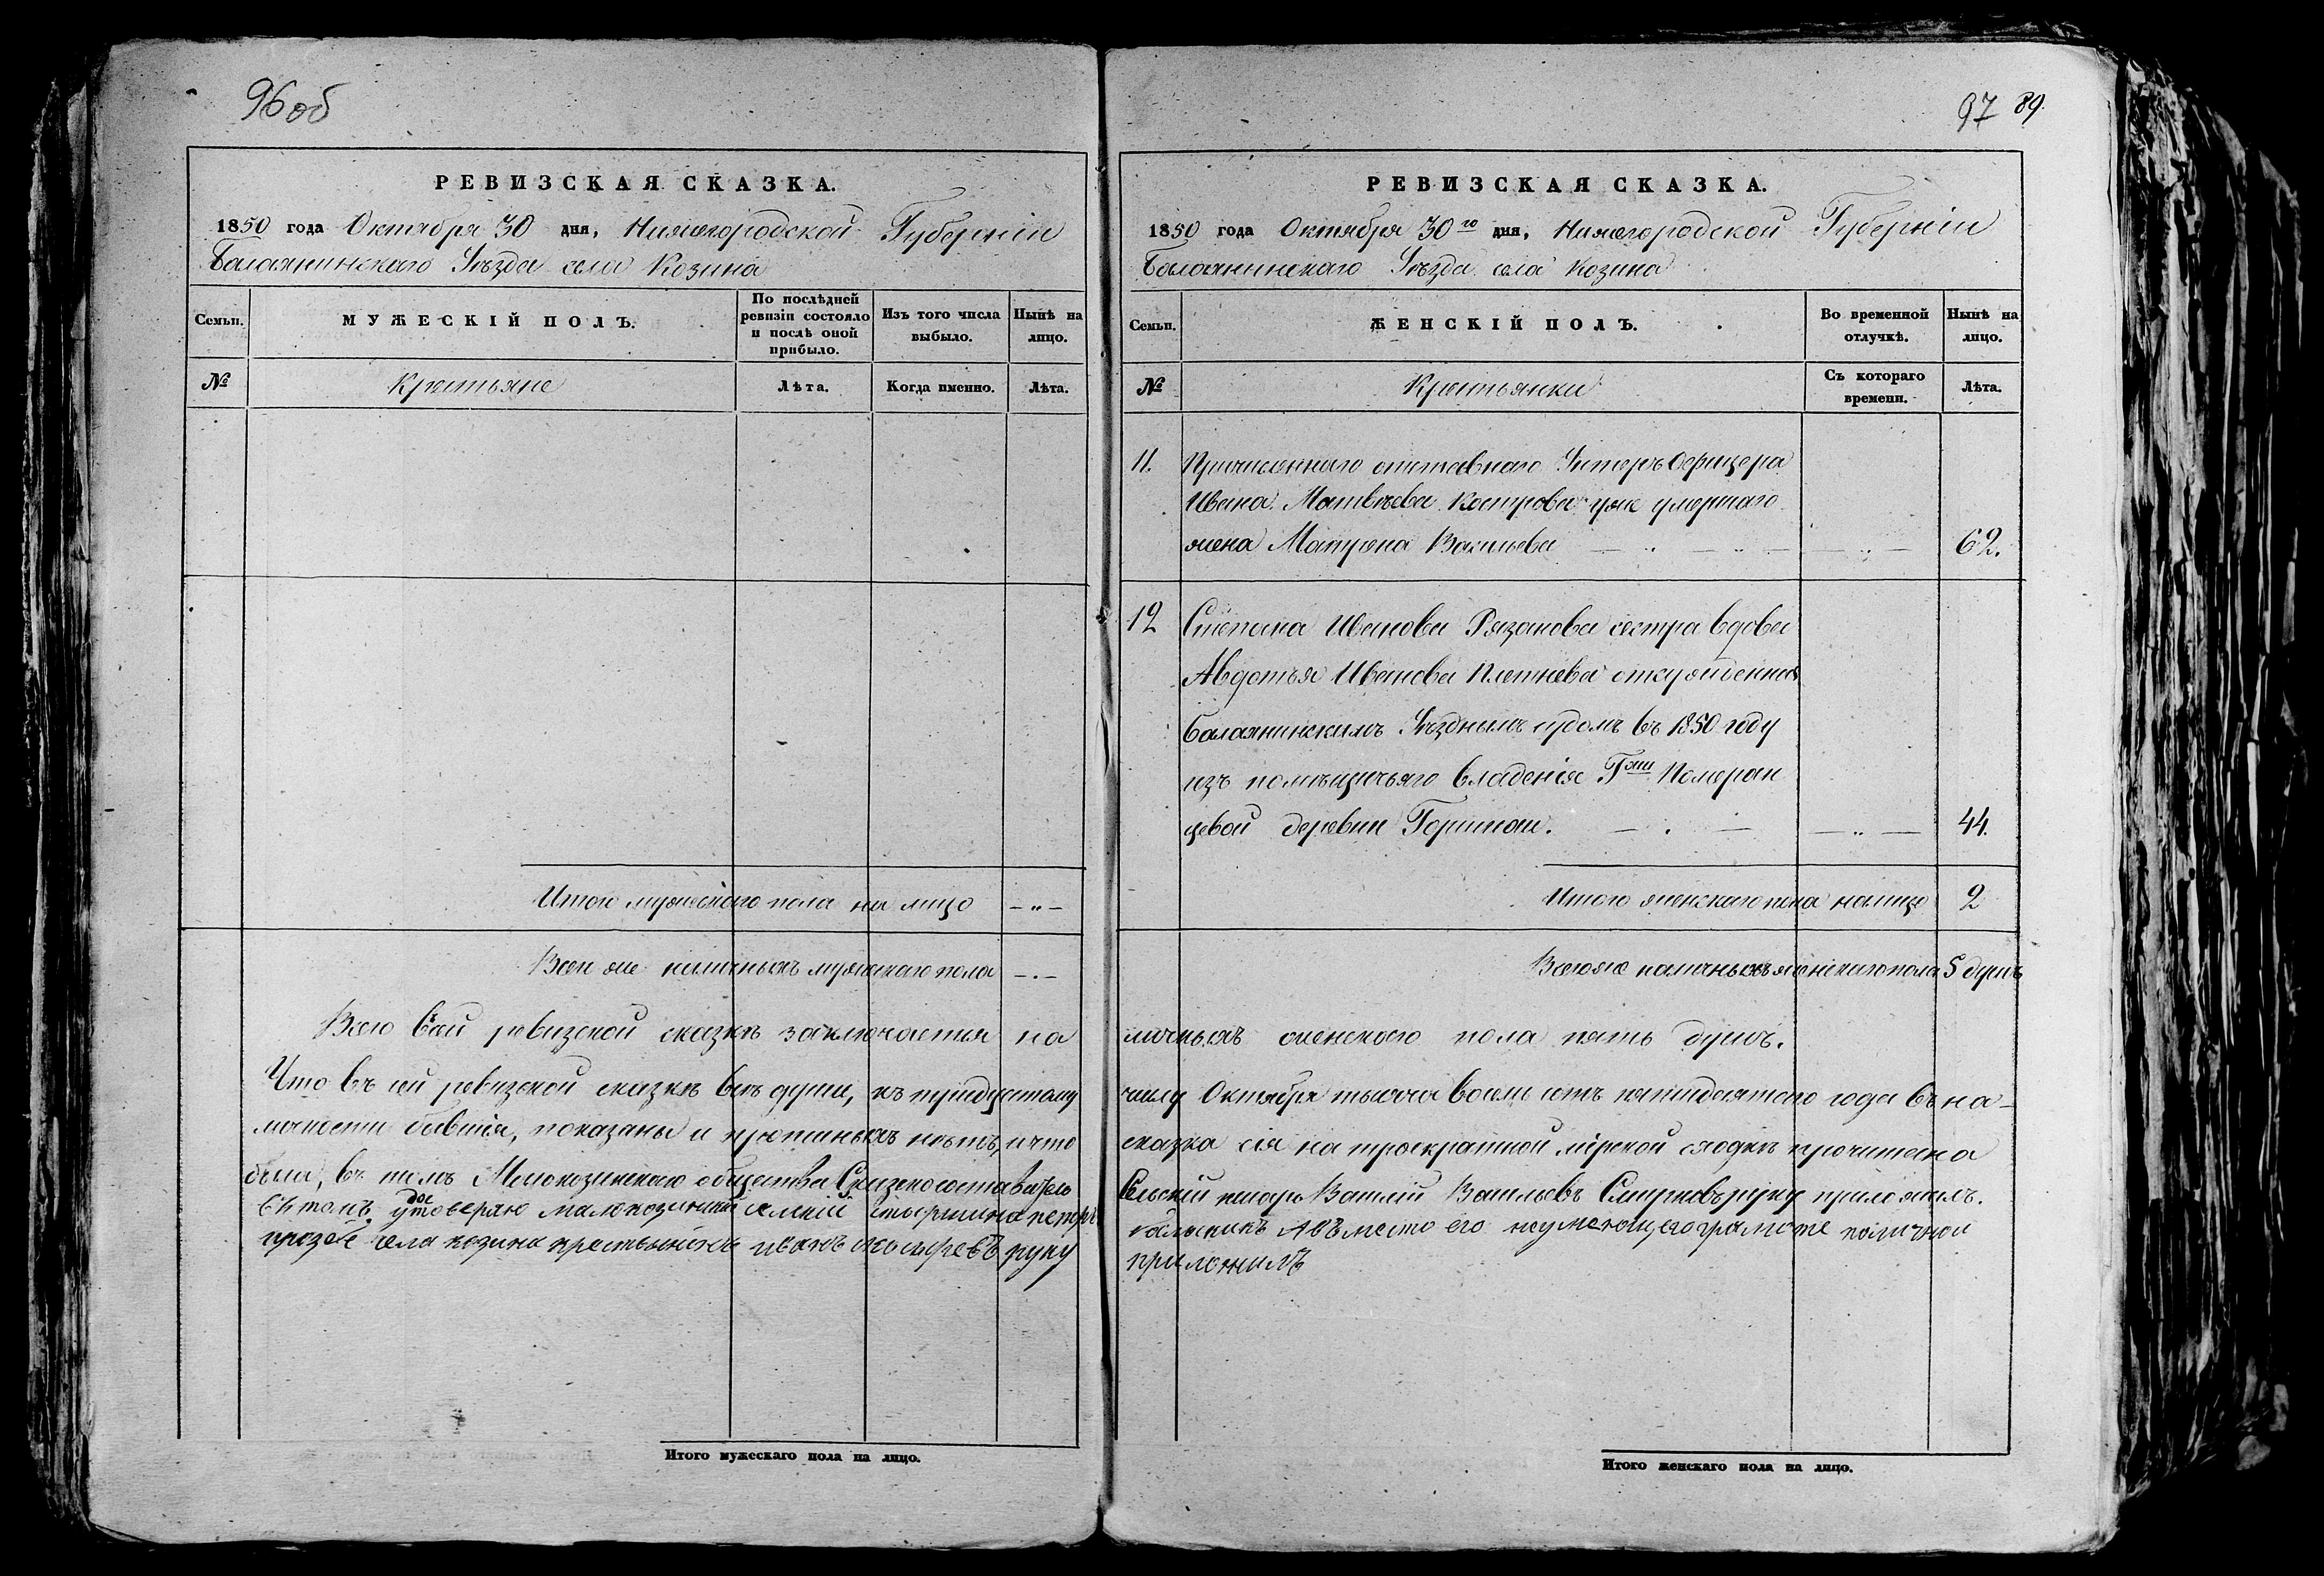 96 об
РЕВИЗСКАЯ СКАЗКА.
1850 года Октября 30 дня, Нижегородской Губерніи
Балахнинскаго Уѣзда села Козина
Семьи.
МУЖЕСКІЙ ПОЛЪ.
По послѣдней
ревизіи состояло
и послѣ оной
прибыло.
Изъ того числа
выбыло.
Нынѣ на
лицо.
№
Крестьяне
Лѣта.
Когда именно.
Лѣта.
Итого мужескаго пола на лицо — „ —
Всего же наличныхъ мужескаго пола — . —
Всего в сей ревизской сказкѣ заключается на
Что въ сей ревизской сказкѣ всѣ души, къ тридцатому
личности бывшія, показаны и прописныхъ нѣтъ, и что
была, въ томъ Малокозинскаго общества Сказкосоставитель
въ томъ удостоверяю малокозинский селский старшина петръ
села козина крестьянинъ иванъ руку
Итого мужескаго пола на лицо.
97 89.
РЕВИЗСКАЯ СКАЗКА.
1850 года Октября 30го дня, Нижегородской Губерніи
Балахнинскаго Уѣзда села Козина
Семьи.
ЖЕНСКІЙ ПОЛЪ.
Во временной
отлучкѣ.
Нынѣ на
лицо.
№
Крестьянки
Съ котораго
времени.
Лѣта.
11. Причисленнаго отставнаго Унтеръ Офицера
Ивана Матвѣева Кострова уже умершаго
жена Матрена Васильева — „ — „ — — „ — 62.
12 Степана Иванова Рязанова сестра вдова
Авдотья Иванова Плетнева отсужденная
Балахнинскимъ Уѣзднымъ судомъ въ 1850 году
изъ помѣщичьяго владенія Гжи Померан
цевой деревни — . — — „ — 44.
Итого женскаго пола налицо 2
Всего же наличныхъ женскаго пола 5 душъ
личныхъ женскаго пола пять душъ.
числу Октября тысяча восемь сотъ пятидесятаго года въ на-
сказка сія на троекратной мірской сходкѣ прочитана
Сельскій писарь Василій Васильевъ Смирновъ руку приложилъ.
А въместо его неумеющего грамоте по личной
приложилъ
Итого женскаго пола на лицо.